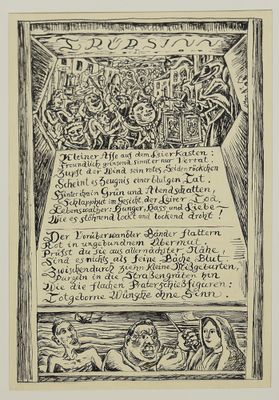 TRÜBSINN
Kleiner Affe auf dem Leierkasten:
Freundlich grinsend sinnt er nur Verrat.
Zupft der Wind sein rotes Seidenröckchen
Scheint es Zeugnis einer blutgen Tat.
Hinter ihm in Grün und Abendschatten,
Schlapphut im Gesicht der Leirer Tod,
Lebenswalzer: Hunger, Hass und Liebe
Wie es stöhnend lockt und lockend droht!
Der Vorüberwandler Bänder flattern
Rot in ungebundnem Übermut.
Prüfst du sie aus allernächster Nähe
Sind es nichts als feine Bäche Blut.
Zwischendurch ziehn kleine Missgeburten,
Purzeln in die Strassengräben hin
Wie die flachen Praterschießfiguren:
Totgeborne Wünsche ohne Sinn.